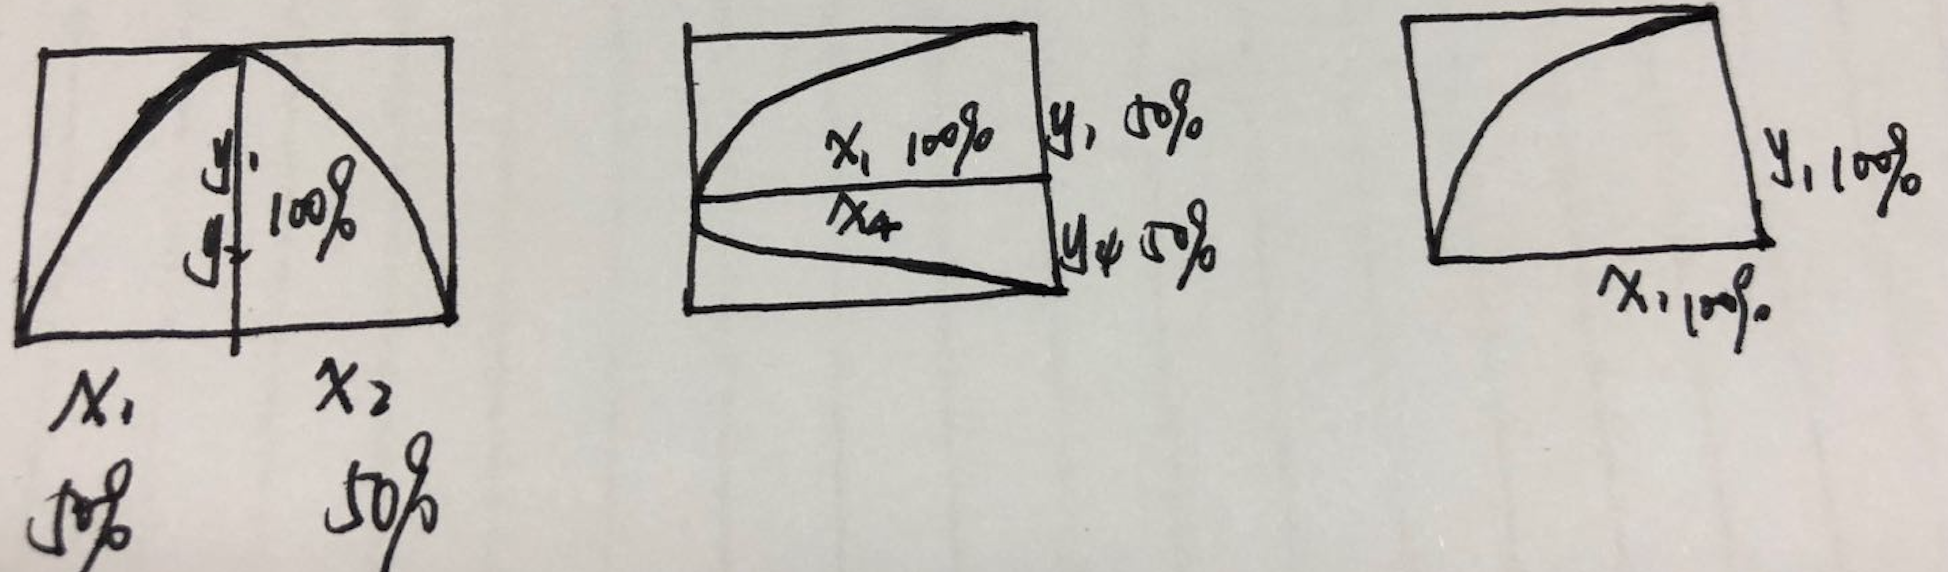 y₁
y₂ 100%
x₁ x₂
50% 50%
x₁ 100%
x₄
y₁ 50%
y₄ 50%
y₁ 100%
x₁ 100%